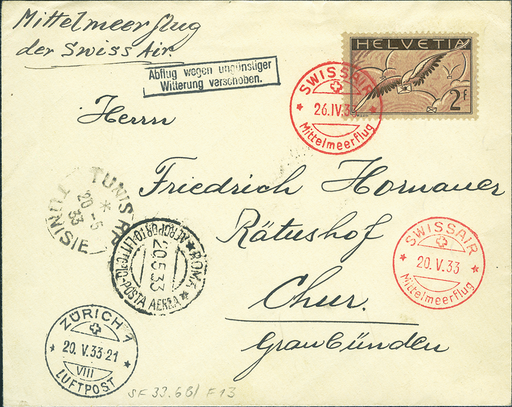 Mittelmeerflug
der Swiss Air
Abflug wegen ungünstiger
Witterung verschoben.
HELVETIA
2 F
SWISSAIR
26.IV.33
Mittelmeerflug
Herrn
Friedrich Hornauer
Rätushof
Chur.
Graubünden
TUNIS R.P.
20-5
33
TUNISIE
ROMA
AEROPORTO-LITTORIO-POSTA AEREA
20.5.33
SWISSAIR
20.V.33
Mittelmeerflug
ZÜRICH 1
20.V.33-21
VIII
LUFTPOST
SF 33.6B/ F13